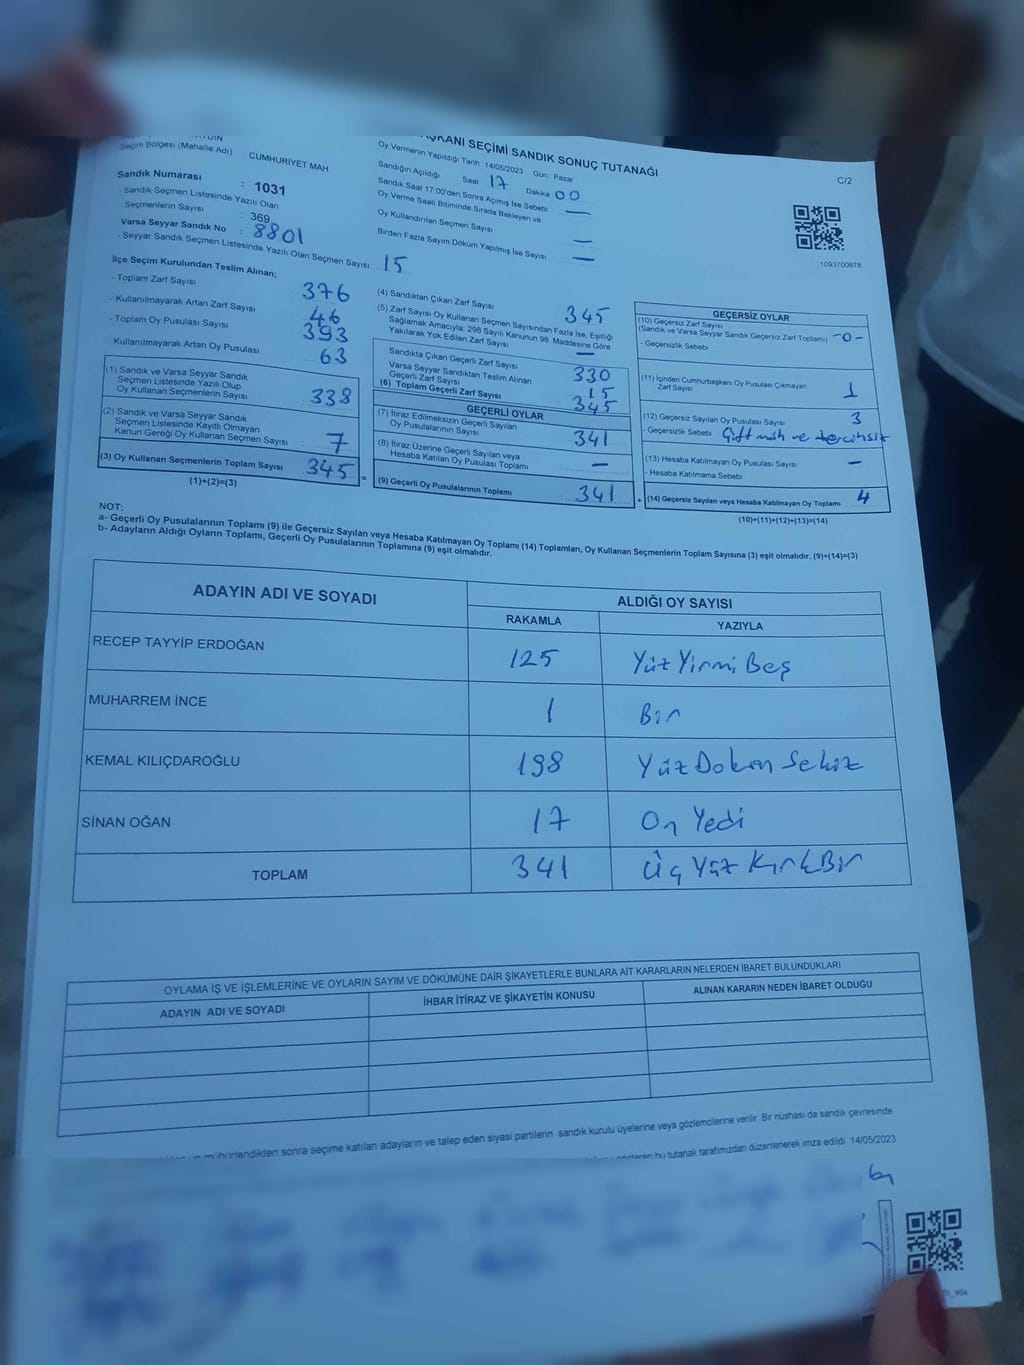 ŞKANI SEÇİMİ SANDIK SONUÇ TUTANAĞI
C/2
Seçim Bölgesi (Mahalle Adı) : CUMHURİYET MAH
Sandık Numarası : 1031
Sandık Seçmen Listesinde Yazılı Olan
Seçmenlerin Sayısı : 369
Varsa Seyyar Sandık No : 8801
- Seyyar Sandık Seçmen Listesinde Yazılı Olan Seçmen Sayısı 15
Oy Vermenin Yapıldığı Tarih 14/05/2023 Gün Pazar
Sandığın Açıldığı Saat 17 Dakika 00
Sandık Saat 17:00'den Sonra Açılmış İse Sebebi —
Oy Verme Saati Bitiminde Sırada Bekleyen ve
Oy Kullandırılan Seçmen Sayısı —
Birden Fazla Sayım Döküm Yapılmış İse Sayısı —
1093700878
İlçe Seçim Kurulundan Teslim Alınan;
- Toplam Zarf Sayısı 376
- Kullanılmayarak Artan Zarf Sayısı 46
- Toplam Oy Pusulası Sayısı 393
Kullanılmayarak Artan Oy Pusulası 63
(1) Sandık ve Varsa Seyyar Sandık
Seçmen Listesinde Yazılı Olup
Oy Kullanan Seçmenlerin Sayısı 338
(2) Sandık ve Varsa Seyyar Sandık
Seçmen Listesinde Kayıtlı Olmayan
Kanun Gereği Oy Kullanan Seçmen Sayısı 7
(3) Oy Kullanan Seçmenlerin Toplam Sayısı 345
(1)+(2)=(3)
(4) Sandıktan Çıkan Zarf Sayısı 345
(5) Zarf Sayısı Oy Kullanan Seçmen Sayısından Fazla İse, Eşitliği
Sağlamak Amacıyla; 298 Sayılı Kanunun 98. Maddesine Göre
Yakılarak Yok Edilen Zarf Sayısı —
Sandıkta Çıkan Geçerli Zarf Sayısı 330
Varsa Seyyar Sandıktan Teslim Alınan
Geçerli Zarf Sayısı 15
(6) Toplam Geçerli Zarf Sayısı 345
GEÇERLİ OYLAR
(7) İtiraz Edilmeksizin Geçerli Sayılan
Oy Pusulalarının Sayısı 341
(8) İtiraz Üzerine Geçerli Sayılan veya
Hesaba Katılan Oy Pusulası Toplamı —
(9) Geçerli Oy Pusulalarının Toplamı 341
GEÇERSİZ OYLAR
(10) Geçersiz Zarf Sayısı
(Sandık ve Varsa Seyyar Sandık Geçersiz Zarf Toplamı) -0-
- Geçersizlik Sebebi
(11) İçinden Cumhurbaşkanı Oy Pusulası Çıkmayan
Zarf Sayısı 1
(12) Geçersiz Sayılan Oy Pusulası Sayısı 3
- Geçersizlik Sebebi Çift müh ve tercihsiz
(13) Hesaba Katılmayan Oy Pusulası Sayısı —
- Hesaba Katılmama Sebebi
(14) Geçersiz Sayılan veya Hesaba Katılmayan Oy Toplamı 4
(10)+(11)+(12)+(13)=(14)
NOT:
a- Geçerli Oy Pusulalarının Toplamı (9) ile Geçersiz Sayılan veya Hesaba Katılmayan Oy Toplamı (14) Toplamları, Oy Kullanan Seçmenlerin Toplam Sayısına (3) eşit olmalıdır. (9)+(14)=(3)
b- Adayların Aldığı Oyların Toplamı, Geçerli Oy Pusulalarının Toplamına (9) eşit olmalıdır.
ADAYIN ADI VE SOYADI ALDIĞI OY SAYISI
RAKAMLA YAZIYLA
RECEP TAYYİP ERDOĞAN 125 Yüz Yirmi Beş
MUHARREM İNCE 1 Bir
KEMAL KILIÇDAROĞLU 198 Yüz Doksan Sekiz
SİNAN OĞAN 17 On Yedi
TOPLAM 341 Üç Yüz Kırk Bir
OYLAMA İŞ VE İŞLEMLERİNE VE OYLARIN SAYIM VE DÖKÜMÜNE DAİR ŞİKAYETLERLE BUNLARA AİT KARARLARIN NELERDEN İBARET BULUNDUKLARI
ADAYIN ADI VE SOYADI İHBAR İTİRAZ VE ŞİKAYETİN KONUSU ALINAN KARARIN NEDEN İBARET OLDUĞU
mühürlendikten sonra seçime katılan adayların ve talep eden siyasi partilerin sandık kurulu üyelerine veya gözlemcilerine verilir. Bir nüshası da sandık çevresinde
bu tutanak tarafımızdan düzenlenerek imza edildi. 14/05/2023